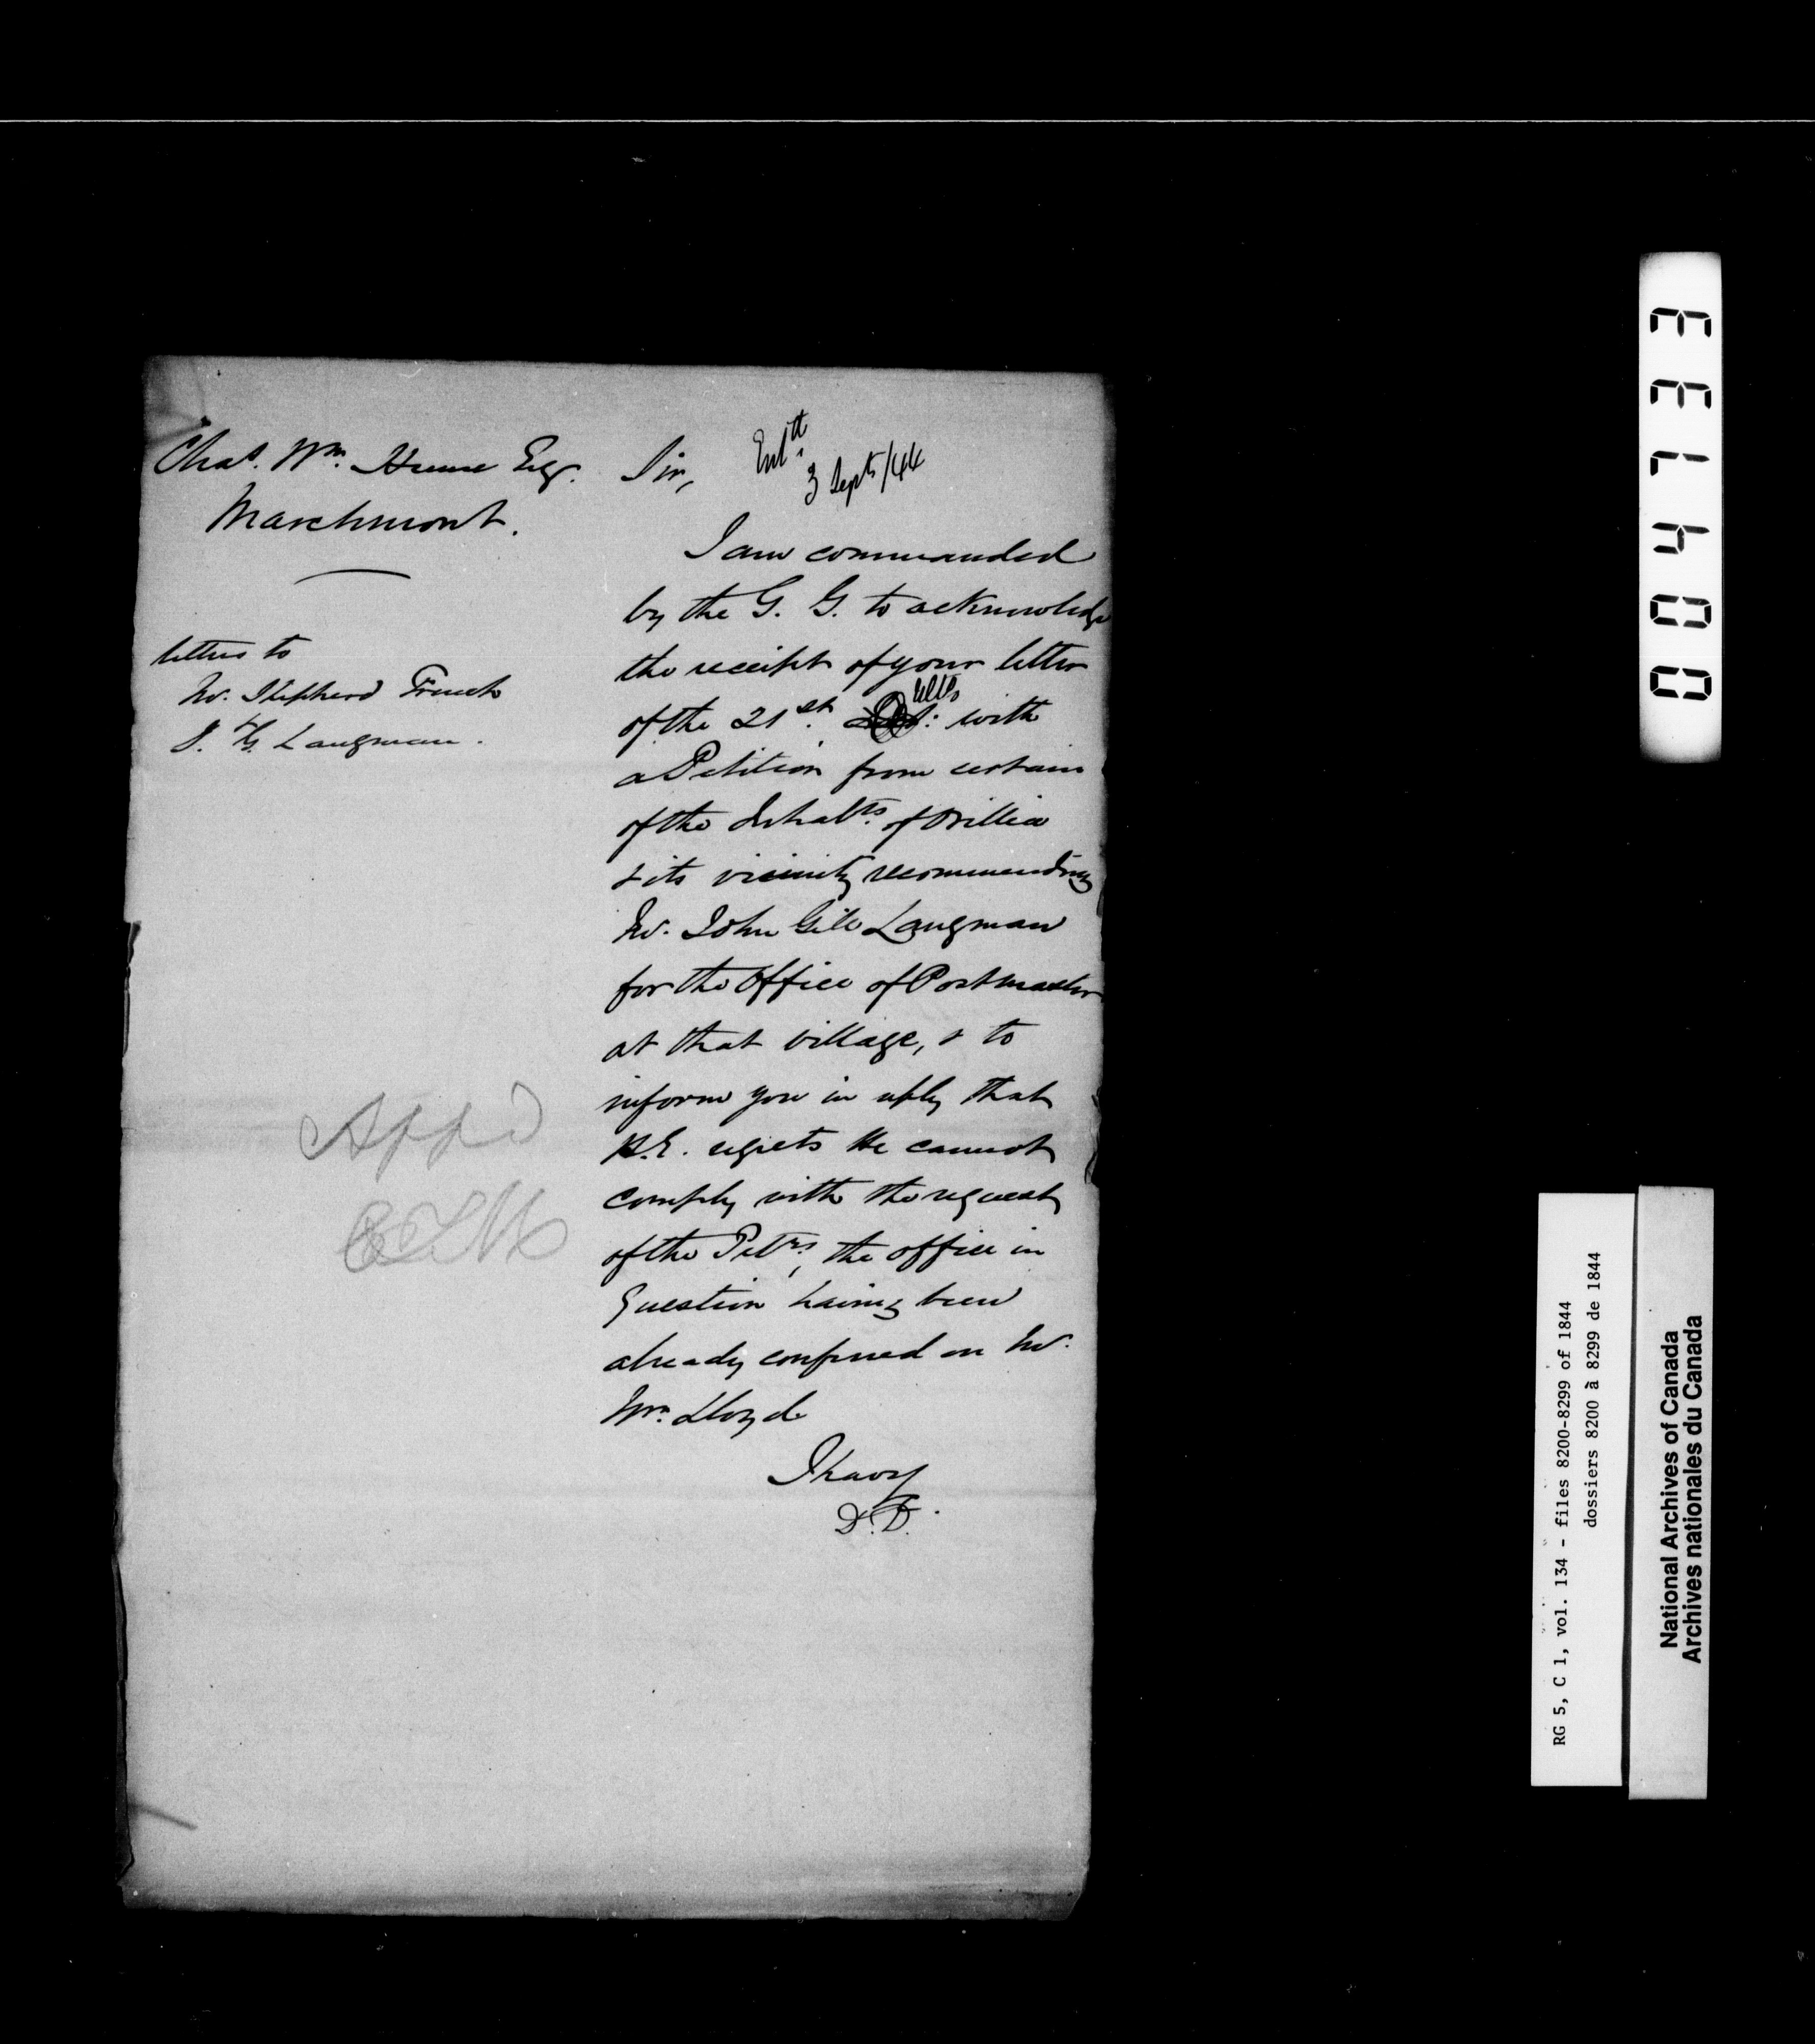 Chas. Wm. Hume Esqr.
Marchmont.
letters to
Mr. Shepherd French
J. G. Langman.
Appd
Sir,
Entd.
3 Septr/44
I am commanded
by the G. G. to acknowledge
the receipt of your letter
of the 21st. ulto with
a Petition from certain
of the Inhabts. of Orillia
& its vicinity recommending
Mr. John Gill Langman
for the Office of Postmaster
at that village, & to
inform you in reply that
H.E. regrets He cannot
comply with the request
of the Petrs, the office in
Question having been
already conferred on Mr.
Wm. Lloyd
I have
D.D.
004733
RG 5, C 1, vol. 134 - files 8200-8299 of 1844
dossiers 8200 à 8299 de 1844
National Archives of Canada
Archives nationales du Canada